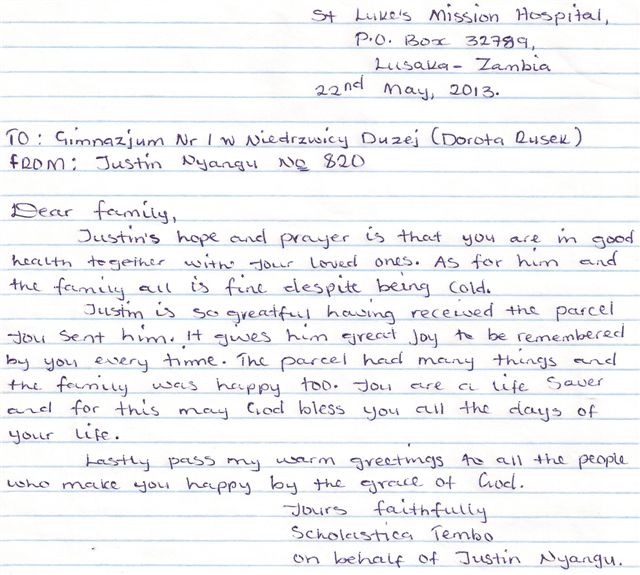 St Luke's Mission Hospital,
P.O. Box 32789,
Lusaka - Zambia
22nd May, 2013.
TO: Gimnazjum Nr 1 w Niedrzwicy Duzej (Dorota Rusek)
FROM: Justin Nyangu No 820
Dear family,
Justin's hope and prayer is that you are in good
health together with your loved ones. As for him and
the family all is fine despite being cold.
Justin is so greatful having received the parcel
you sent him. It gives him great joy to be remembered
by you every time. The parcel had many things and
the family was happy too. You are a life saver
and for this may God bless you all the days of
your life.
Lastly pass my warm greetings to all the people
who make you happy by the grace of God.
Yours faithfully
Scholastica Tembo
on behalf of Justin Nyangu.